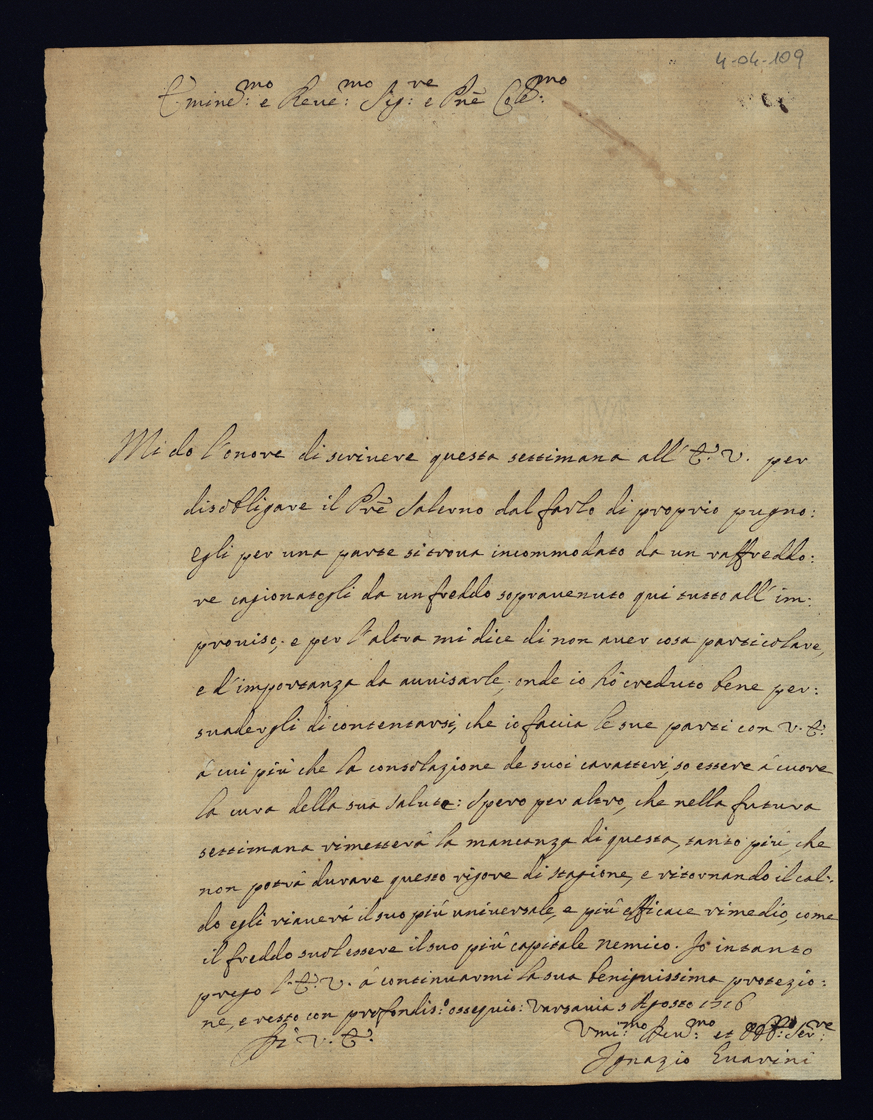 4-04-109
Emine:mo e Reue:mo Sig:re e Prē Cole:mo
Mi do l'onore di scriuere questa settimana all' E. V. per
disobligare il Prē Salerno dal farlo di proprio pugno:
egli per una parte si troua incommodato da un raffreddo:
re cagionatogli da un freddo soprauenuto qui tutto all' im:
prouiso; e per l'altra mi dice di non auer cosa particolare,
e d'importanza da auuisarle; onde io hò creduto bene per:
suadergli di contentarsi, che io faccia le sue parti con V. E.
à cui più che la consolazione de suoi caratteri, so essere à cuore
la cura della sua salute: Spero per altro, che nella futura
settimana rimetterà la mancanza di questa, tanto più che
non potrà durare questo rigore di stagione, e ritornando il cal:
do egli riauerà il suo più uniuersale, e più efficace rimedio, come
il freddo suol essere il suo più capitale nemico. Io intanto
prego l'E. V. à continuarmi la sua benignissima protezio:
ne, e resto con profondis:o ossequio: Varsauia 5 Agosto 1716
Di V. E.
Vmi:mo Deu:mo et Obb:mo Ser:re
Ignazio Guarini